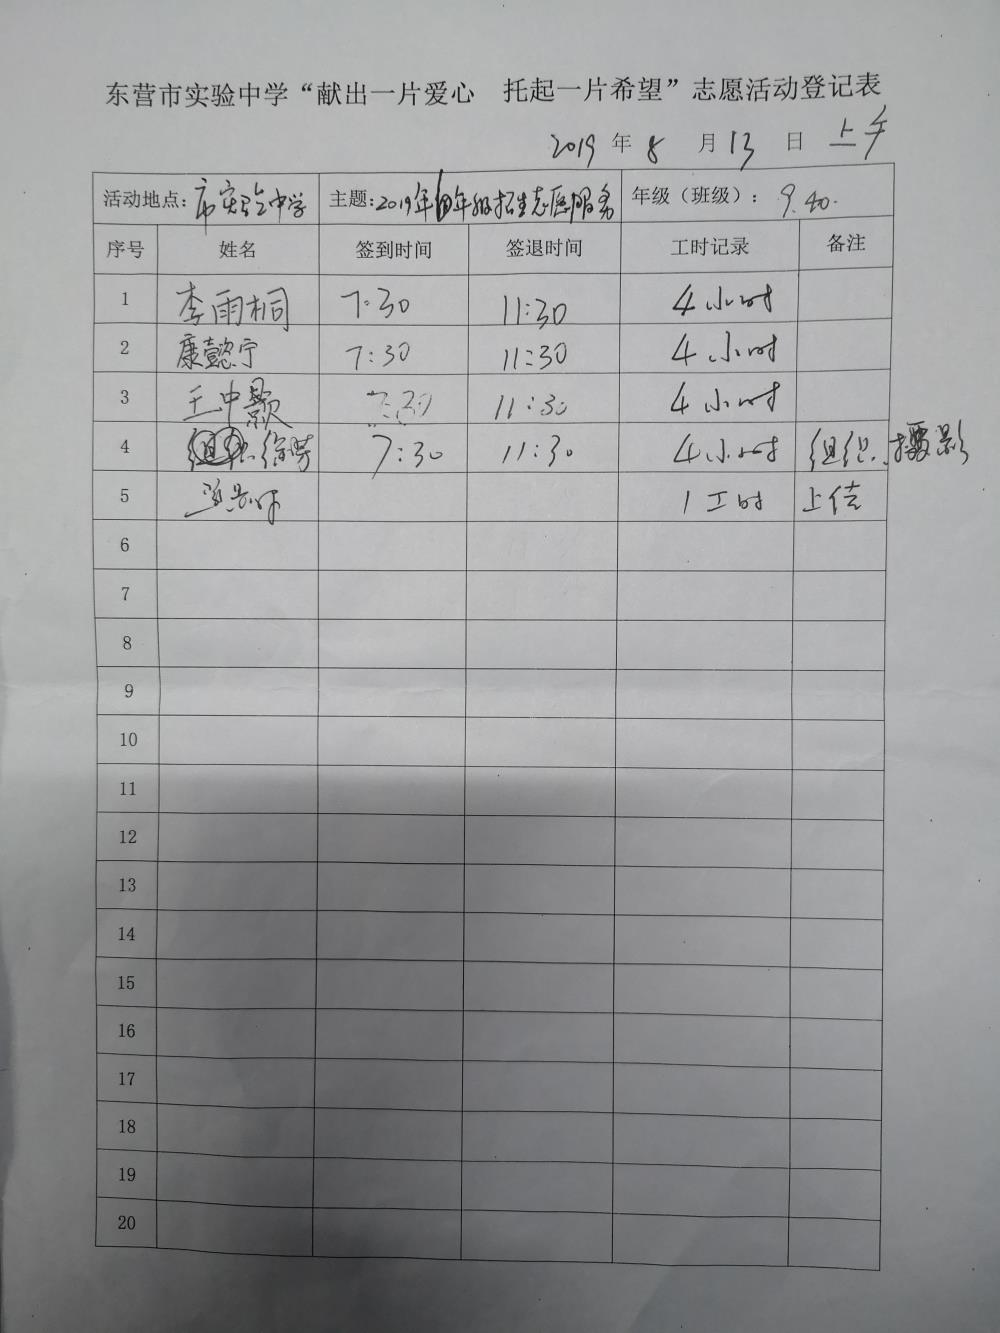 东营市实验中学“献出一片爱心 托起一片希望”志愿活动登记表
2019年8月13日 上午
活动地点：市实验中学 主题：2019年年级招生志愿服务 年级（班级）：9.40.
序号 姓名 签到时间 签退时间 工时记录 备注
1 李雨桐 7:30 11:30 4小时
2 康懿宁 7:30 11:30 4小时
3 王中颢 7:30 11:30 4小时
4 7:30 11:30 4小时 组织、摄影
5 1工时 上传
6
7
8
9
10
11
12
13
14
15
16
17
18
19
20